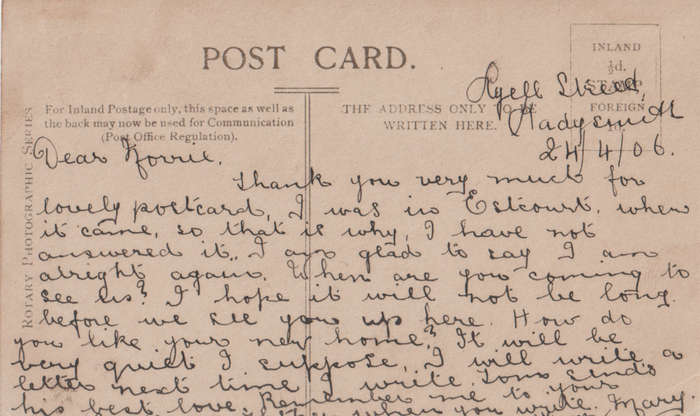 POST CARD.
INLAND
½d.
STAMP
FOREIGN
1d.
For Inland Postage only, this space as well as
the back may now be used for Communication
(Post Office Regulation).
THE ADDRESS ONLY TO BE
WRITTEN HERE.
ROTARY PHOTOGRAPHIC SERIES
Street,
Ladysmith
24/4/06.
Dear
Thank you very much for
lovely postcard, I was in Estcourt, when
it came, so that is why, I have not
answered it. I am glad to say I am
alright again. When are you coming to
see us? I hope it will not be long
before we see you up here. How do
you like your new home? It will be
very quiet I suppose, I will write a
letter next time I write. Tom sends
his best love. Remember me to your
when you write. Mary